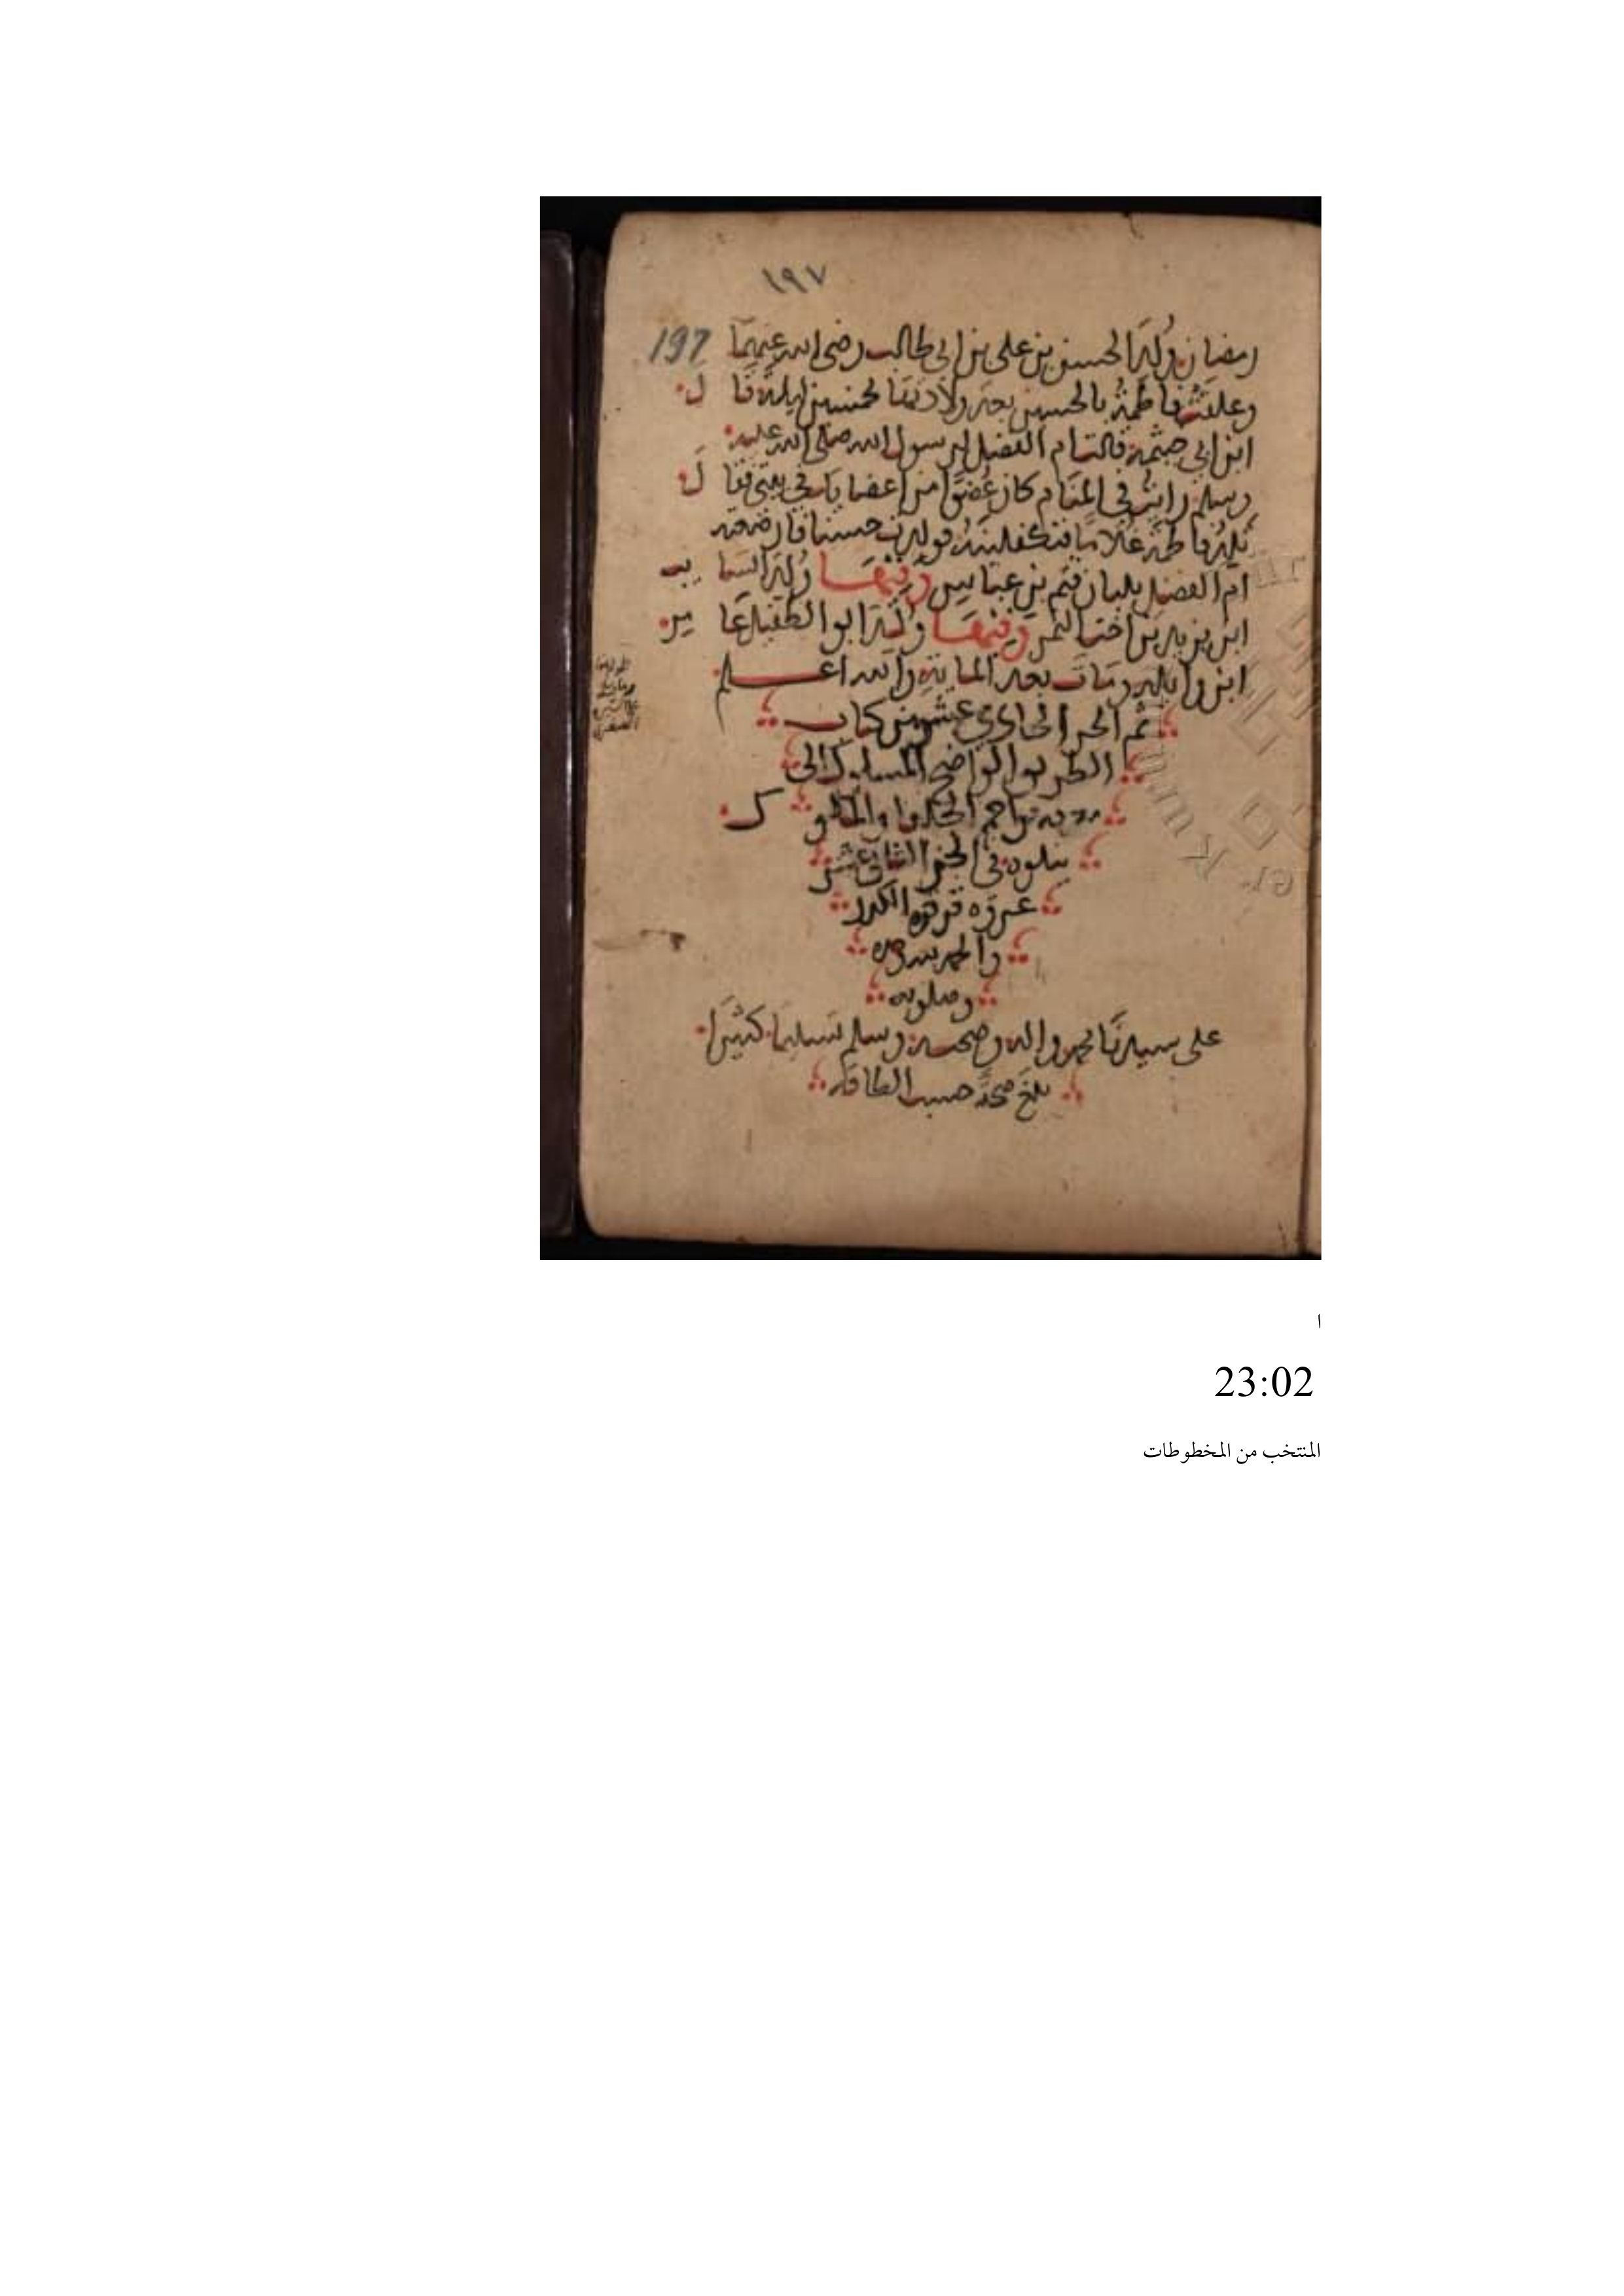 ١٩٧
197
رمضان ولد الحسن بن علي بن ابي طالب رضي الله عنهما
وعلقت فاطمة بالحسين بعد ولادتها لخمسين ليلة قال
ابن ابي حثمة قالت ام الفضل لرسول الله صلى الله عليه
وسلم رايت في المنام كان عضوا من اعضايك في بيتي فقال
تلد فاطمة غلاما فتكفلينه فولدت حسنا فارضعته
ام الفضل بلبان قثم بن عباس وفيها ولد السايب
ابن يزيد بن اخت النمر وفيها ولد ابو الطفيل عامر
ابن واثلة ومات بعد الماية والله اعلم
تم الجز الحادي عشر من كتاب
الطريق الواضح المسلوك الى
تراجم الخلفا والملوك
يتلوه في الجز الثاني عشر
غزوة قرقرة الكدر
والحمد لله وحده
وصلوته
على سيدنا محمد واله وصحبه وسلم تسليما كثيرا
بلغ حسب الطاقة
ا
23:02
المنتخب من المخطوطات